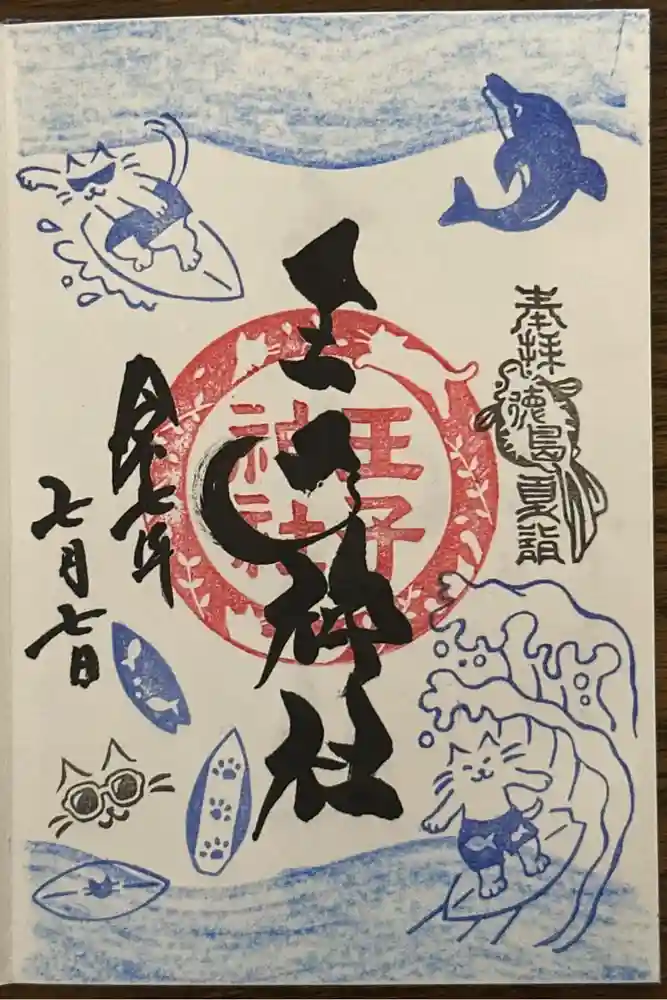 奉拝 徳島夏詣
王子神社
王子
神社
令和七年
七月七日